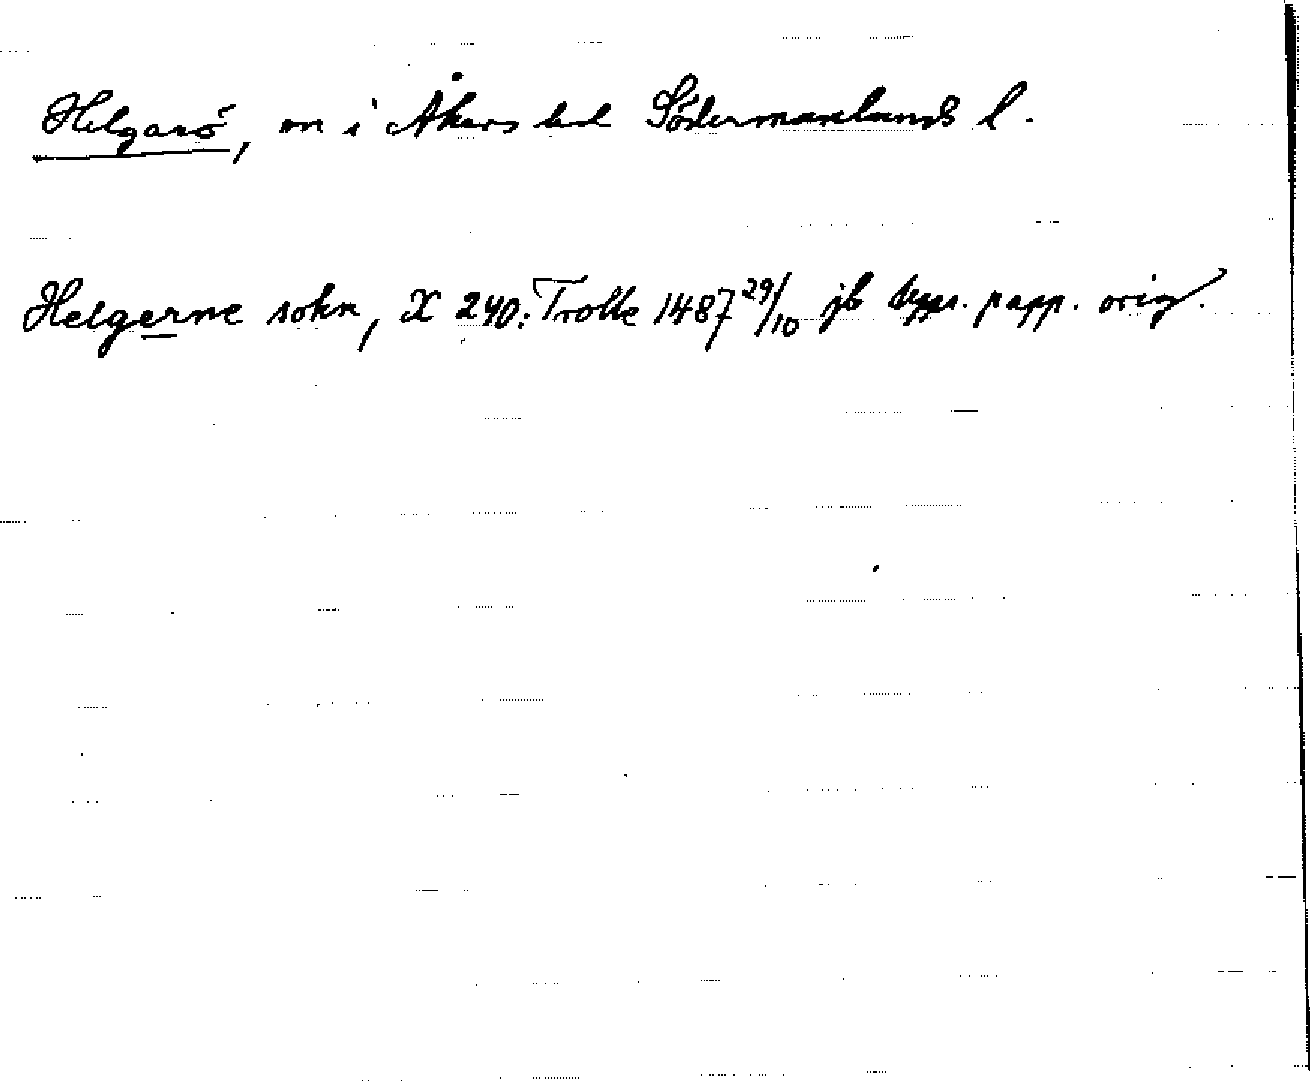 Helgarö, sn i Åkers hd Södermanlands l.
Helgerne sokn, X 240: Trolle 1487 29/10 jb papp. orig.